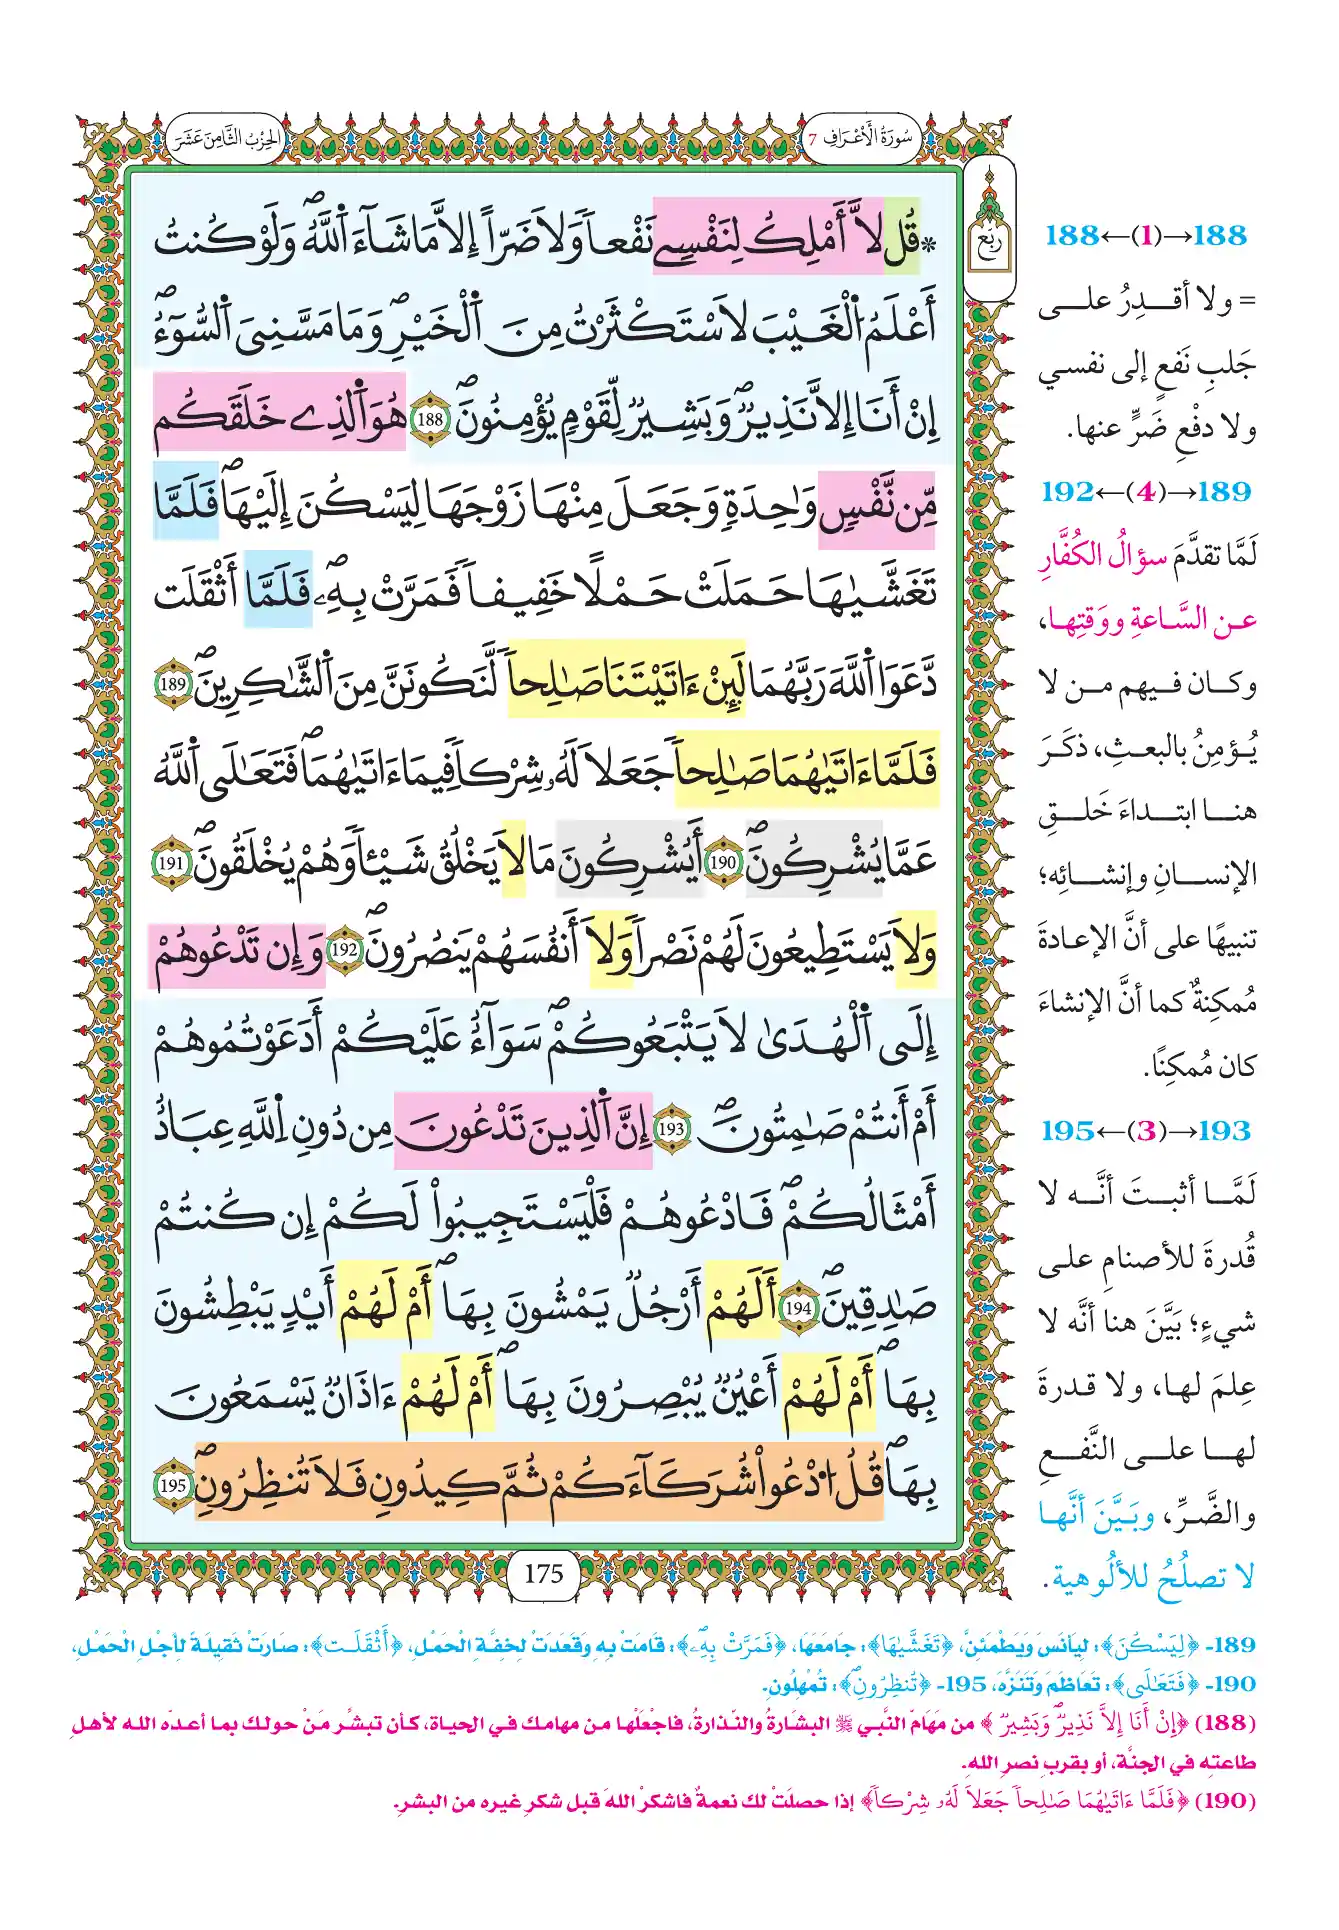 سُورَةُ الْأَعْرَافِ 7
الحِزْبُ الثَّامِنَ عَشَرَ
ربع
* قُل لَّا أَمْلِكُ لِنَفْسِے نَفْعاً وَلَا ضَرّاً اِلَّا مَا شَآءَ اَ۬للَّهُۖ وَلَوْ كُنتُ
أَعْلَمُ اُ۬لْغَيْبَ لَاسْتَكْثَرْتُ مِنَ اَ۬لْخَيْرِۖ وَمَا مَسَّنِىَ اَ۬لسُّوٓءُۖ
إِنْ أَنَا إِلَّا نَذِيرٌۖ وَبَشِيرٌ لِّقَوْمٍ يُؤْمِنُونَۖ 188 هُوَ اَ۬لذِے خَلَقَكُم
مِّن نَّفْسٍ وَٰحِدَةٍ وَجَعَلَ مِنْهَا زَوْجَهَا لِيَسْكُنَ إِلَيْهَاۖ فَلَمَّا
تَغَشَّىٰهَا حَمَلَتْ حَمْلًا خَفِيفاً فَمَرَّتْ بِهِۦۖ فَلَمَّا أَثْقَلَت
دَّعَوَا اَ۬للَّهَ رَبَّهُمَا لَئِنْ ءَاتَيْتَنَا صَٰلِحاً لَّنَكُونَنَّ مِنَ اَ۬لشَّٰكِرِينَۖ 189
فَلَمَّا ءَاتَىٰهُمَا صَٰلِحاً جَعَلَا لَهُۥ شِرْكاً فِيمَا ءَاتَىٰهُمَاۖ فَتَعَٰلَى اَ۬للَّهُ
عَمَّا يُشْرِكُونَۖ 190 أَيُشْرِكُونَ مَا لَا يَخْلُقُ شَيْـٔاً وَهُمْ يُخْلَقُونَۖ 191
وَلَا يَسْتَطِيعُونَ لَهُمْ نَصْراً وَلَا أَنفُسَهُمْ يَنصُرُونَۖ 192 وَإِن تَدْعُوهُمْ
إِلَى اَ۬لْهُدَىٰ لَا يَتْبَعُوكُمْۖ سَوَآءٌ عَلَيْكُمْ أَدَعَوْتُمُوهُمْ
أَمْ أَنتُمْ صَٰمِتُونَۖ 193 إِنَّ اَ۬لذِينَ تَدْعُونَ مِن دُونِ اِ۬للَّهِ عِبَادٌ
أَمْثَالُكُمْۖ فَادْعُوهُمْ فَلْيَسْتَجِيبُواْ لَكُمْ إِن كُنتُمْ
صَٰدِقِينَۖ 194 أَلَهُمْ أَرْجُلٌ يَمْشُونَ بِهَاۖ أَمْ لَهُمْ أَيْدٍ يَبْطِشُونَ
بِهَاۖ أَمْ لَهُمْ أَعْيُنٌ يُبْصِرُونَ بِهَاۖ أَمْ لَهُمْ ءَاذَانٌ يَسْمَعُونَ
بِهَاۖ قُلُ اُ۟دْعُواْ شُرَكَآءَكُمْ ثُمَّ كِيدُونِ فَلَا تُنظِرُونِۖ 195
175
188←(1)→188
= ولا أقدِرُ على
جَلبِ نَفعٍ إلى نفسي
ولا دفْعِ ضَرٍّ عنها.
192←(4)→189
لَمَّا تقدَّمَ سؤالُ الكُفَّارِ
عن السَّاعةِ ووَقتِها،
وكان فيهم من لا
يُؤمِنُ بالبعثِ، ذكَرَ
هنا ابتداءَ خَلقِ
الإنسانِ وإنشائِه؛
تنبيهًا على أنَّ الإعادةَ
مُمكِنةٌ كما أنَّ الإنشاءَ
كان مُمكِنًا.
195←(3)→193
لَمَّا أثبتَ أنَّه لا
قُدرةَ للأصنامِ على
شيءٍ؛ بَيَّنَ هنا أنَّه لا
عِلمَ لها، ولا قدرةَ
لها على النَّفعِ
والضَّرِّ، وبَيَّنَ أنَّها
لا تصلُحُ للألُوهية.
189- ﴿لِيَسْكُنَ﴾: لِيَأنَسَ وَيَطْمَئِنَّ، ﴿تَغَشَّىٰهَا﴾: جامَعَهَا، ﴿فَمَرَّتْ بِهِۦۖ﴾: قَامَتْ بِهِ وَقَعَدَتْ لِخِفَّةِ الْحَمْلِ، ﴿أَثْقَلَت﴾: صَارَتْ ثَقِيلَةً لِأَجْلِ الْحَمْلِ،
190- ﴿فَتَعَٰلَى﴾: تَعَاظَمَ وَتَنَزَّهَ، 195- ﴿تُنظِرُونِۖ﴾: تُمْهِلُونِ.
(188) ﴿إِنْ أَنَا إِلَّا نَذِيرٌۖ وَبَشِيرٌ﴾ من مَهَامّ النَّبي ﷺ البشارةُ والنِّذارةُ، فاجْعَلْها من مهامك في الحياة، كأن تبشِّر مَنْ حولك بما أعدّه الله لأهلِ
طاعتِه في الجنَّة، أو بقربِ نصرِ اللهِ.
(190) ﴿فَلَمَّا ءَاتَىٰهُمَا صَٰلِحاً جَعَلَا لَهُۥ شِرْكاً﴾ إذا حصلَتْ لك نعمةٌ فاشكرْ اللهَ قبل شكرِ غيرِه من البشرِ.